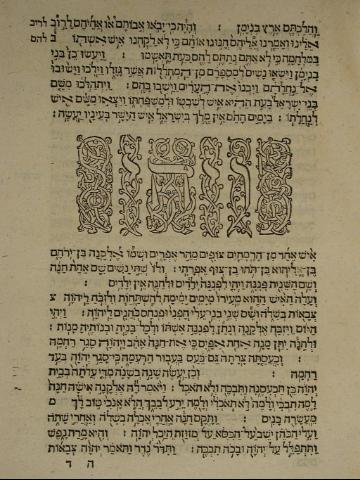 והלכתם ארץ בנימן : והיה כי יבאו אבותם או אחיהם לרוב לריב
אלינו ואמרנו אליהם חנונו אותם כי לא לקחנו איש אשתו
במלחמה כי לא אתם נתתם להם כעת תאשמו : ויעשו כן בני
בנימן וישאו נשים למספרם מן המחללות אשר גזלו וילכו וישובו
אל נחלתם ויבנו את הערים וישבו בהם : ויתהלכו משם
בני ישראל בעת ההיא איש לשבטו ולמשפחתו ויצאו משם איש
לנחלתו : בימים ההם אין מלך בישראל איש הישר בעיניו יעשה :
ויהי
איש אחד מן הרמתים צופים מהר אפרים ושמו אלקנה בן ירחם
בן אליהוא בן תחו בן צוף אפרתי : ולו שתי נשים שם אחת חנה
ושם השנית פננה ויהי לפננה ילדים ולחנה אין ילדים :
ועלה האיש ההוא מעירו מימים ימימה להשתחות ולזבח ליהוה
צבאות בשלה ושם שני בני עלי חפני ופנחס כהנים ליהוה : ויהי
היום ויזבח אלקנה ונתן לפננה אשתו ולכל בניה ובנותיה מנות :
ולחנה יתן מנה אחת אפים כי את חנה אהב ויהוה סגר רחמה
: וכעסתה צרתה גם כעס בעבור הרעמה כי סגר יהוה בעד
רחמה : וכן יעשה שנה בשנה מדי עלתה בבית
יהוה כן תכעסנה ותבכה ולא תאכל : ויאמר לה אלקנה אישה חנה
למה תבכי ולמה לא תאכלי ולמה ירע לבבך הלא אנכי טוב לך
מעשרה בנים : ותקם חנה אחרי אכלה בשלה ואחרי שתה
ועלי הכהן ישב על הכסא על מזוזת היכל יהוה : והיא מרת נפש
ותתפלל על יהוה ובכה תבכה : ותדר נדר ותאמר יהוה צבאות
ה ד